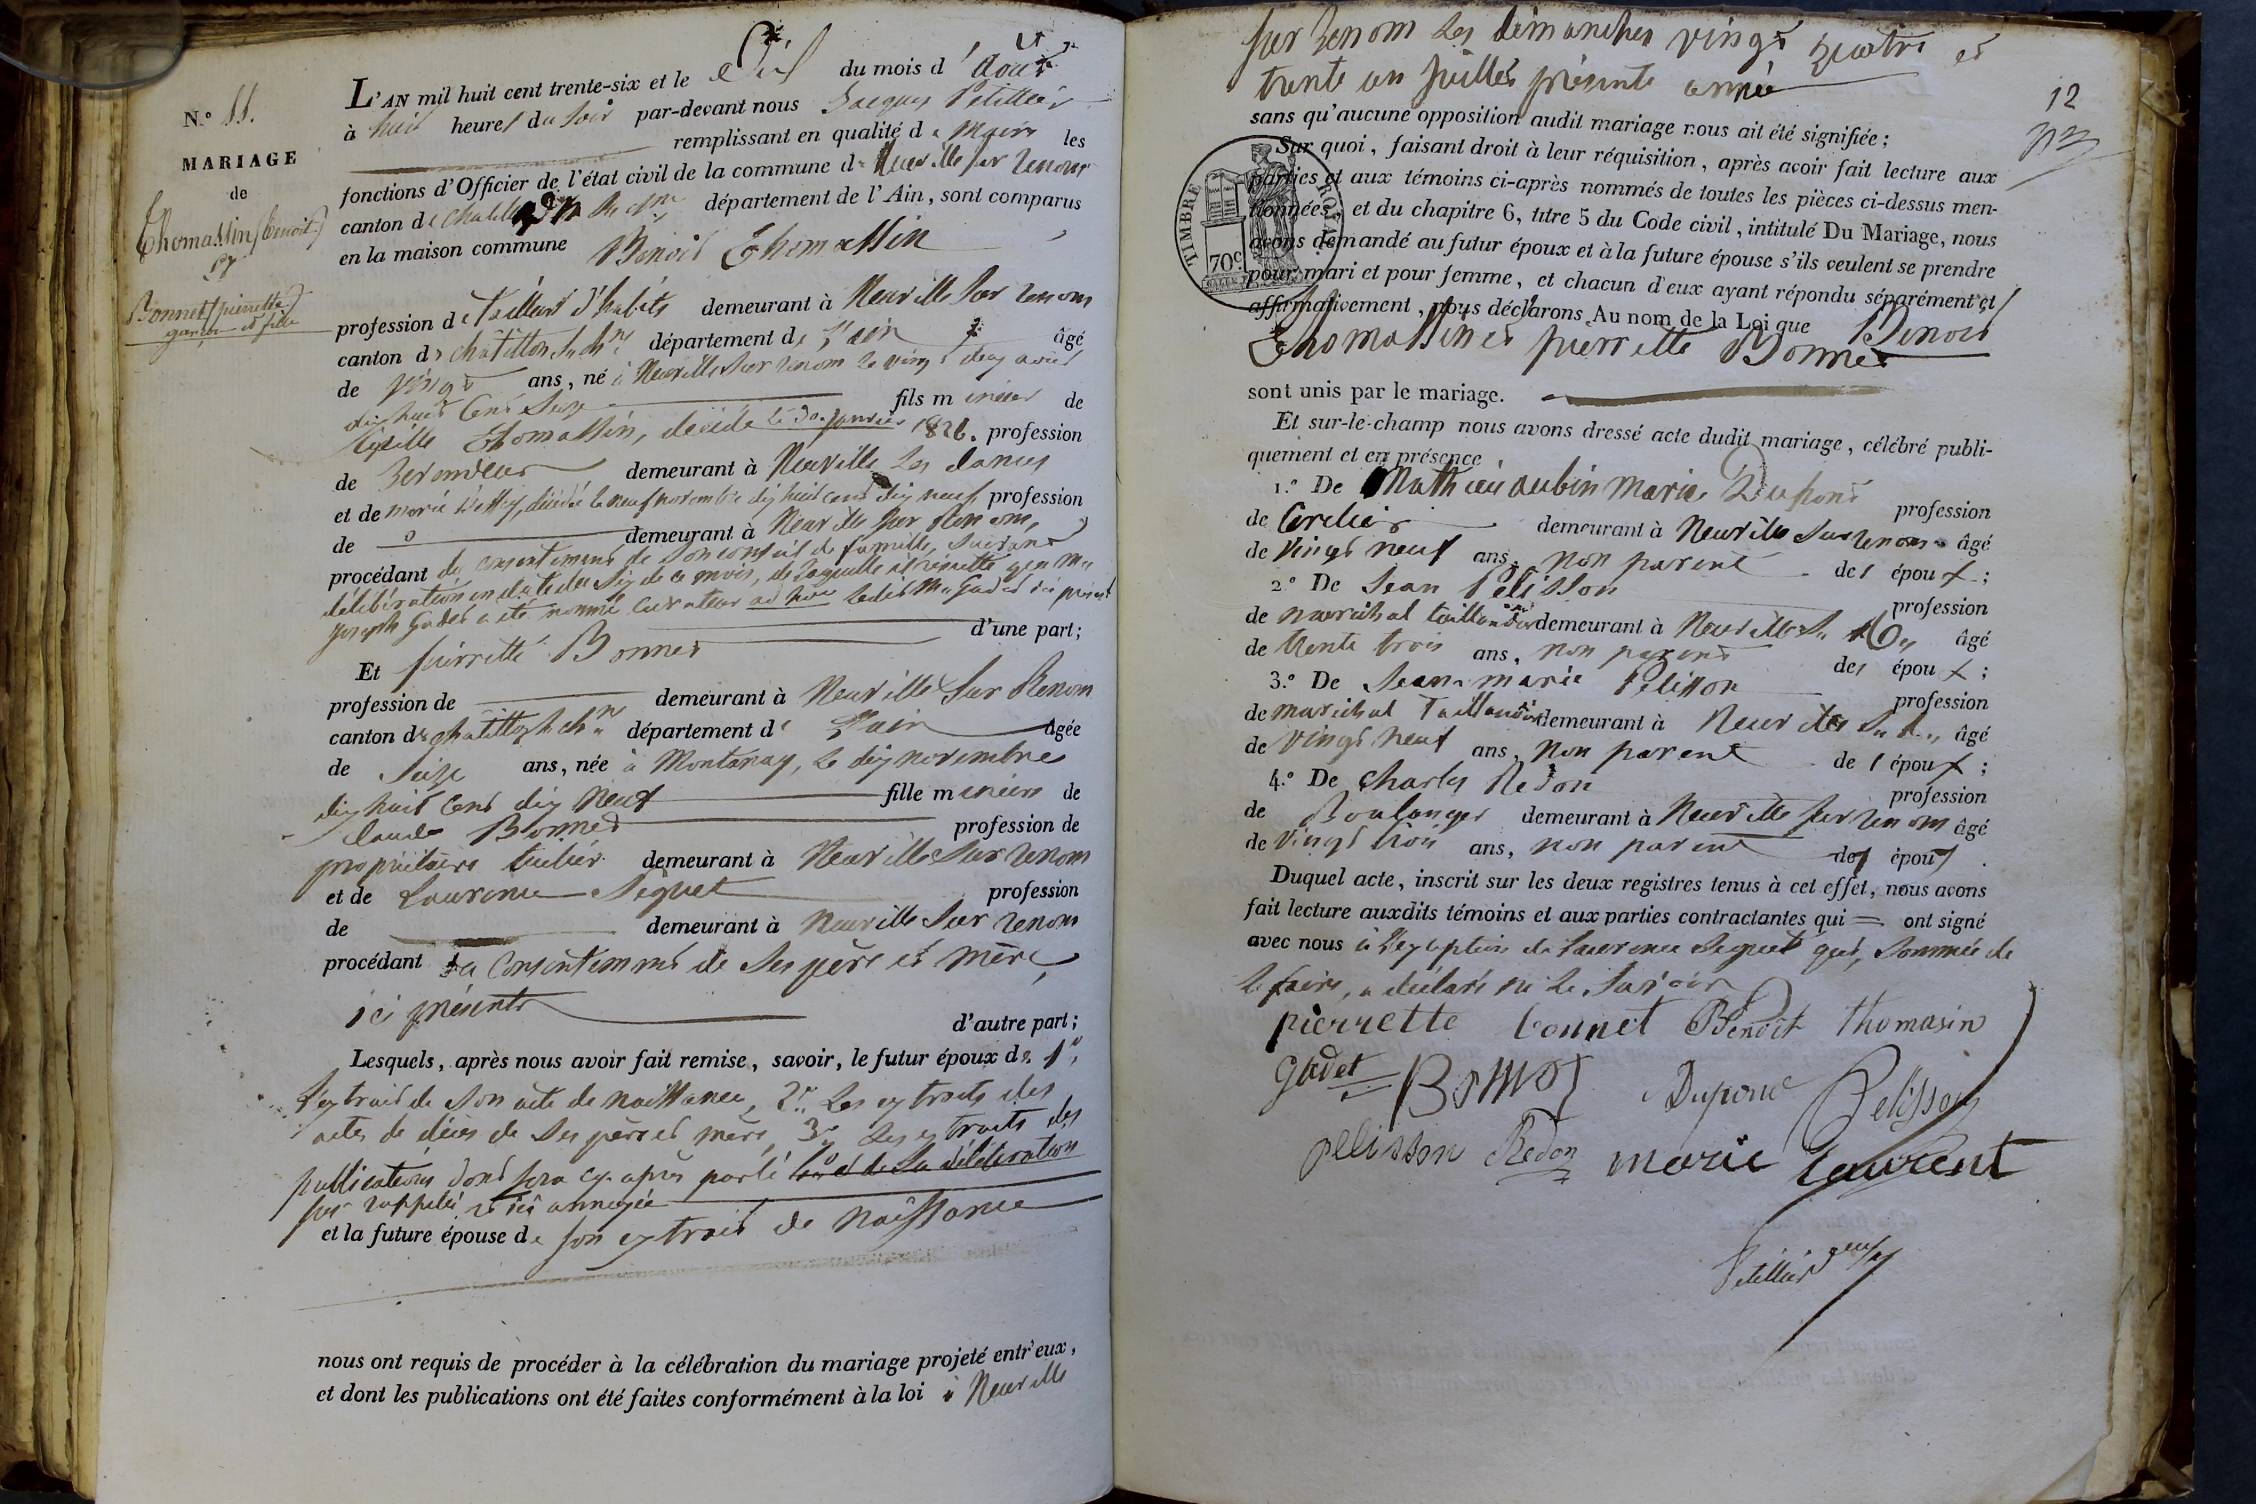 N.° 11.
MARIAGE
de
Thomassin (Benoit)
et
Bonnet (pierrette)
garçon et fille
L'AN mil huit cent trente-six et le dix du mois d'août
à huit heures du soir par-devant nous Jacques Petillier
remplissant en qualité de Maire les
fonctions d'Officier de l'état civil de la commune de Neuville sur Renom
canton de département de l'Ain, sont comparus
en la maison commune Benoit Thomassin
profession de tailleur d'habits demeurant à Neuville sur renom
canton de chatillon s. ch.ne département de l'ain âgé
de vingt ans, né à Neuville sur renom le vingt deux août
dix huit cent seize fils mineur de
Thomassin, décédé le 30. janvier 1826. profession
de demeurant à Neuville les dames
et de marie décédée le neuf novembre dix huit cent dix neuf profession
de demeurant à Neuville sur Renom,
procédant du consentement de son conseil de famille, suivant
délibération en date du six de ce mois, de laquelle il résulte que Mr.
joseph Gadet a été nommé curateur ad hoc ledit Mr. Gadet ici présent
d'une part;
Et pierrette Bonnet
profession de demeurant à Neuville sur Renom
canton de chatillon s. ch.ne département de l'ain âgée
de Seize ans, née à Montanay, le dix novembre
dix huit cent dix neuf fille mineure de
Claude Bonnet profession de
propriétaire tuilier demeurant à Neuville sur renom
et de Laurence Seguet profession
de demeurant à Neuville sur renom
procédant du consentement de ses père et mère,
ici présents
d'autre part;
Lesquels, après nous avoir fait remise, savoir, le futur époux de 1°,
l'extrait de son acte de naissance, 2° les extraits des
actes de décès de ses père et mère, 3° les extraits des
publications dont sera cy-après parlé et de la délibération
sus rappelée et ici annexée
et la future épouse de son extrait de naissance
nous ont requis de procéder à la célébration du mariage projeté entr'eux,
et dont les publications ont été faites conformément à la loi à Neuville
sur renom les dimanches vingt quatre et
trente un juillet présente année
12
sans qu'aucune opposition audit mariage nous ait été signifiée;
Sur quoi, faisant droit à leur réquisition, après avoir fait lecture aux
parties et aux témoins ci-après nommés de toutes les pièces ci-dessus men-
tionnées, et du chapitre 6, titre 5 du Code civil, intitulé Du Mariage, nous
avons demandé au futur époux et à la future épouse s'ils veulent se prendre
pour mari et pour femme, et chacun d'eux ayant répondu séparément et
affirmativement, nous déclarons Au nom de la Loi que Benoit
Thomassin et pierrette Bonnet
TIMBRE ROYAL
70c
sont unis par le mariage.
Et sur-le-champ nous avons dressé acte dudit mariage, célébré publi-
quement et en présence
1.° De Mathieu aubin marie Dupont
profession
de demeurant à Neuville sur renom âgé
de vingt neuf ans, non parent des époux;
2.° De Jean Pelisson
profession
de marechal taillandier demeurant à Neuville s. R. âgé
de trente trois ans, non parent des époux;
3.° De Jean-marie Pelisson
profession
de marechal Taillandier demeurant à Neuville s. R. âgé
de vingt neuf ans, non parent des époux;
4.° De Charles Redon
profession
de Boulanger demeurant à Neuville sur renom âgé
de vingt trois ans, non parent des époux.
Duquel acte, inscrit sur les deux registres tenus à cet effet, nous avons
fait lecture auxdits témoins et aux parties contractantes qui ont signé
avec nous à l'exception de Laurence Seguet qui, sommée de
le faire, a déclaré ne le savoir
pierrette bonnet Benoit thomasin
gadet Bonnet Dupont Pelisson
pelisson Redon marie laurent
Petillier